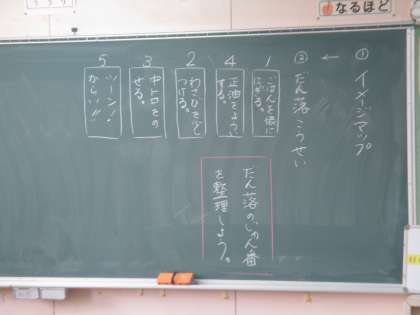 なるほど
①イメージマップ
↓
②だん落こうせい
1
ごはんを俵に
にぎる。
4
正油をようい
する。
2
わさびを少し
つける。
3
中トロをの
せる。
5
ツーン!
からい!!
だん落の、じゅん番
を整理しよう。